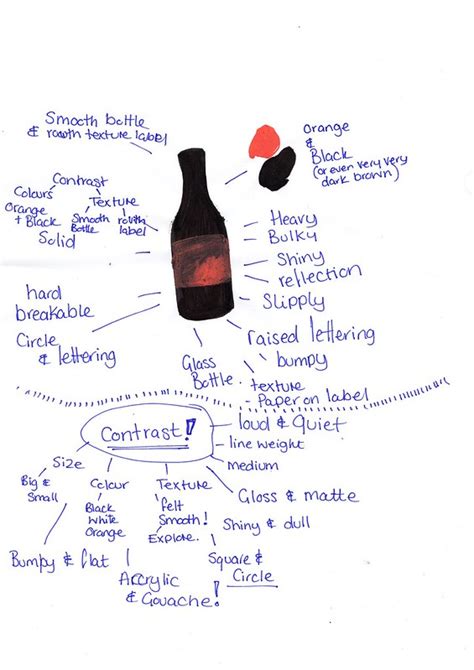 Smooth bottle
& rowth texture label
Orange
&
Black
(or even very very
dark brown)
Contrast
Colours
Orange
+ Black
Texture
Smooth
Bottle
rowth
label
Solid
Heavy
Bulky
Shiny
reflection
Slipply
hard
breakable
Circle
& lettering
Glass
Bottle.
raised lettering
bumpy
texture
- Paper on label
Contrast!
loud & Quiet
line weight
medium
Gloss & matte
Size
Big &
Small
Colour
Black
White
Orange
Texture
felt
Smooth!
Explore.
Shiny & dull
Bumpy & flat
Accrylic
& Gouache!
Square &
Circle